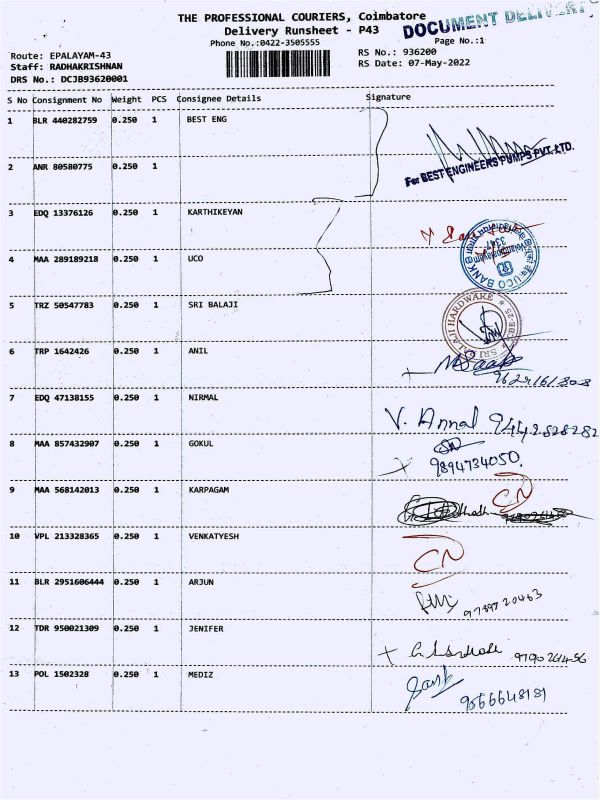 THE PROFESSIONAL COURIERS, Coimbatore
DOCUMENT DELIVERY
Delivery Runsheet - P43
Phone No.:0422-3505555
Page No.:1
Route: EPALAYAM-43
RS No.: 936200
Staff: RADHAKRISHNAN
RS Date: 07-May-2022
DRS No.: DCJB93620001
S No Consignment No Weight PCS Consignee Details Signature
1 BLR 440282759 0.250 1 BEST ENG
For BEST ENGINEERS PUMPS PVT. LTD.
2 ANR 80580775 0.250 1
3 EDQ 13376126 0.250 1 KARTHIKEYAN
4 MAA 289189218 0.250 1 UCO
UCO BANK
3347
5 TRZ 50547783 0.250 1 SRI BALAJI
SRI BALAJI HARDWARE
6 TRP 1642426 0.250 1 ANIL
7 EDQ 47138155 0.250 1 NIRMAL
V. Annal 9442828282
8 MAA 857432907 0.250 1 GOKUL
9894734050.
9 MAA 568142013 0.250 1 KARPAGAM
CN
10 VPL 213328365 0.250 1 VENKATYESH
CN
11 BLR 2951606444 0.250 1 ARJUN
9789720463
12 TDR 950021309 0.250 1 JENIFER
9790261456
13 POL 1502328 0.250 1 MEDIZ
9566648181